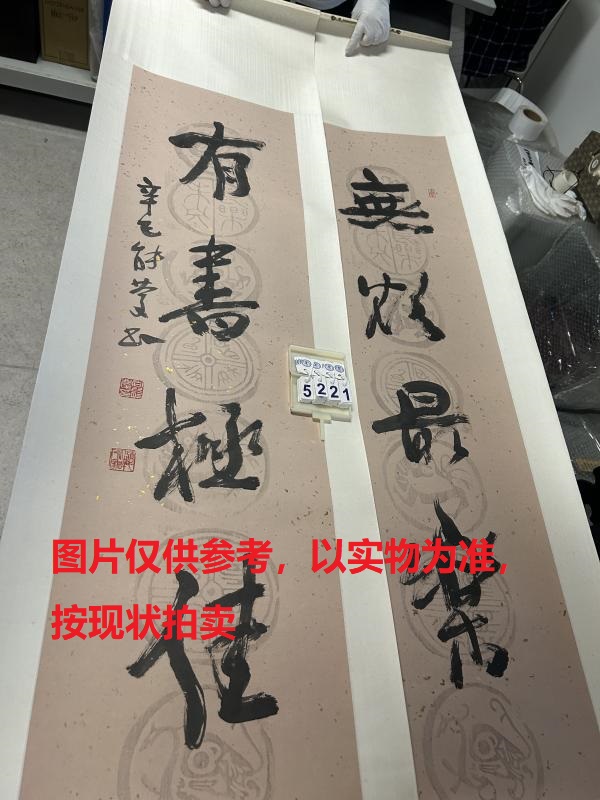 無最樂
有書極佳
辛巳
5221
图片仅供参考，以实物为准，
按现状拍卖